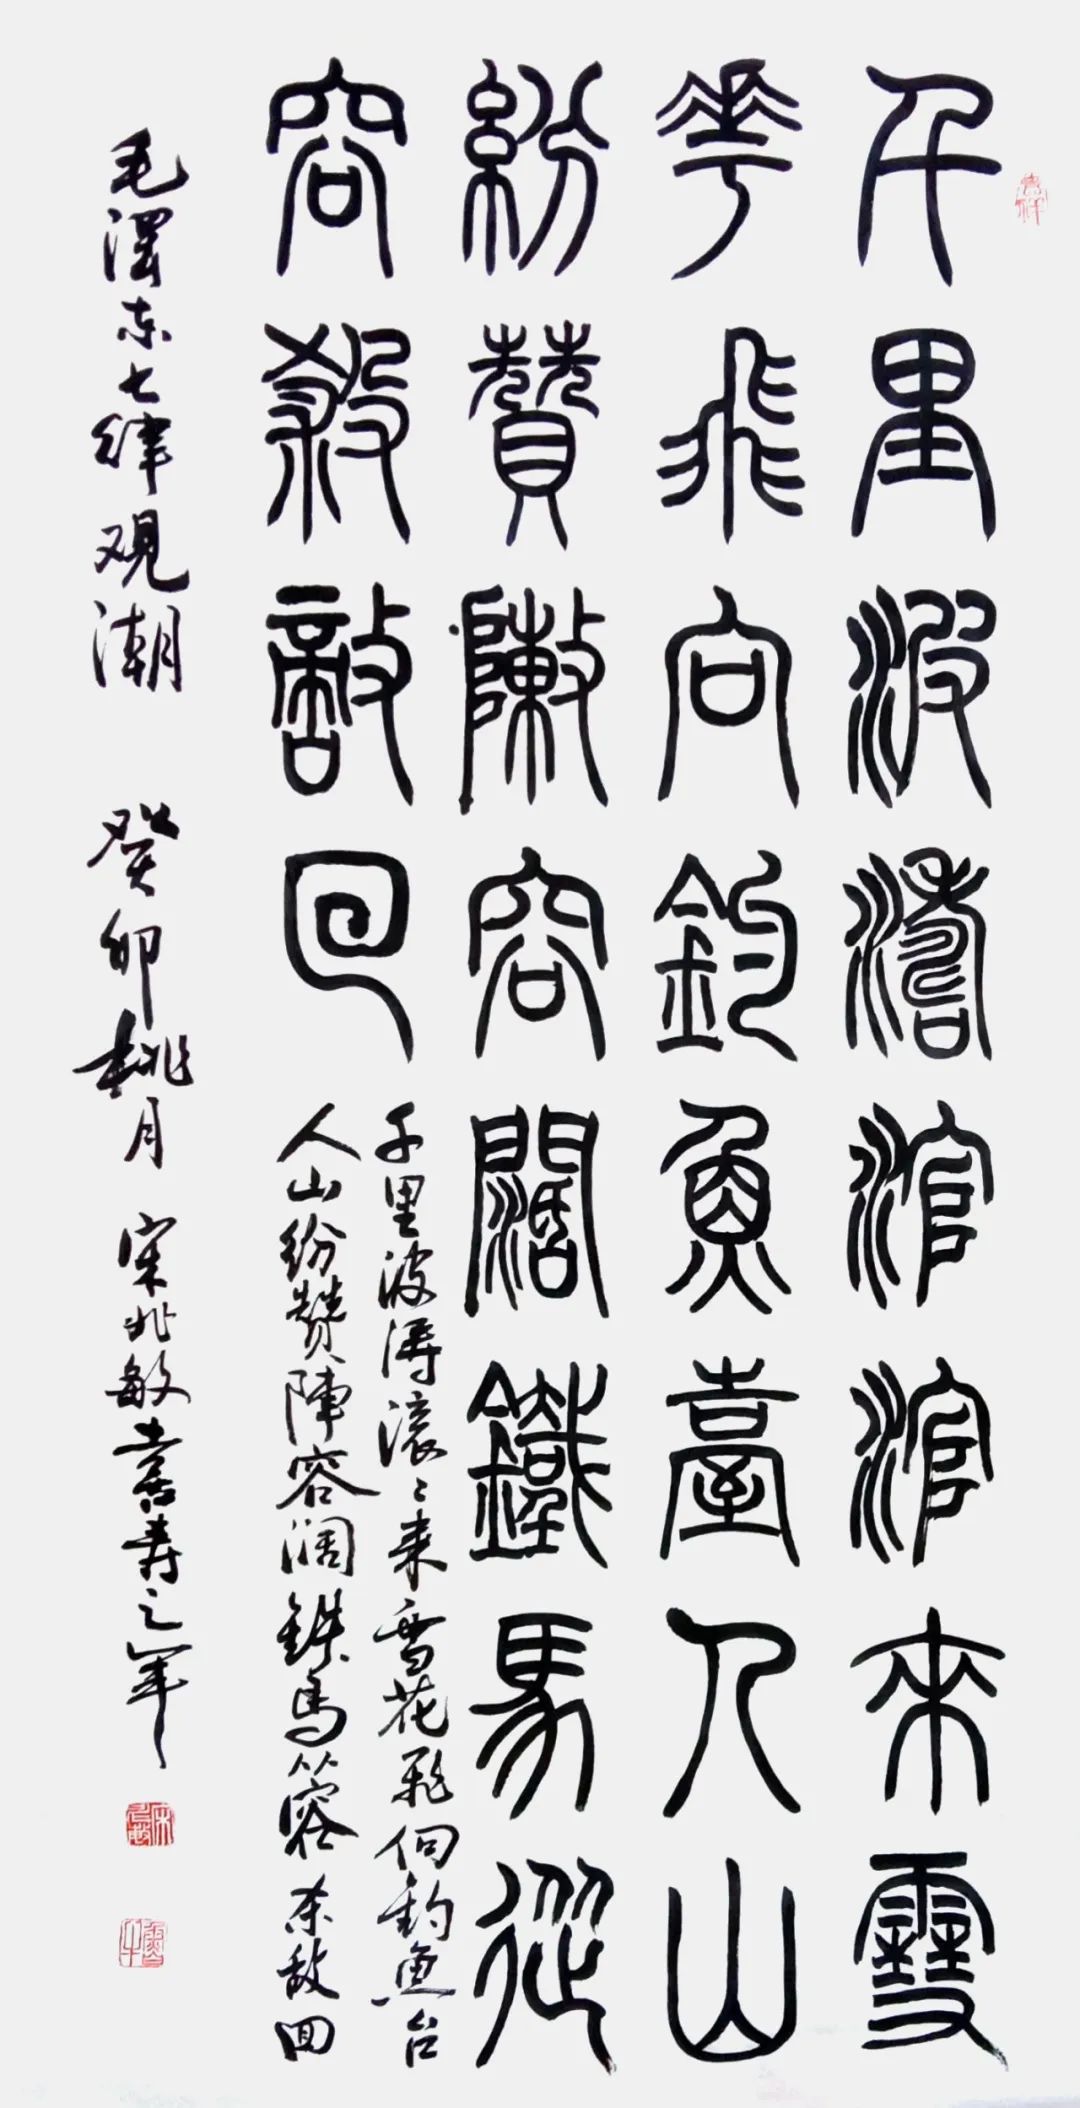 吉祥
千里波濤滚滚來雪
華飛向釣魚臺人山
紛贊陳容闊鐵馬從
容殺敵回
千里波濤滚〻来雪花飛向釣魚台
人山纷赞陣容阔鉄馬從容杀敌回
毛澤东七律观潮 癸卯桃月 宋兆敏喜寿之年